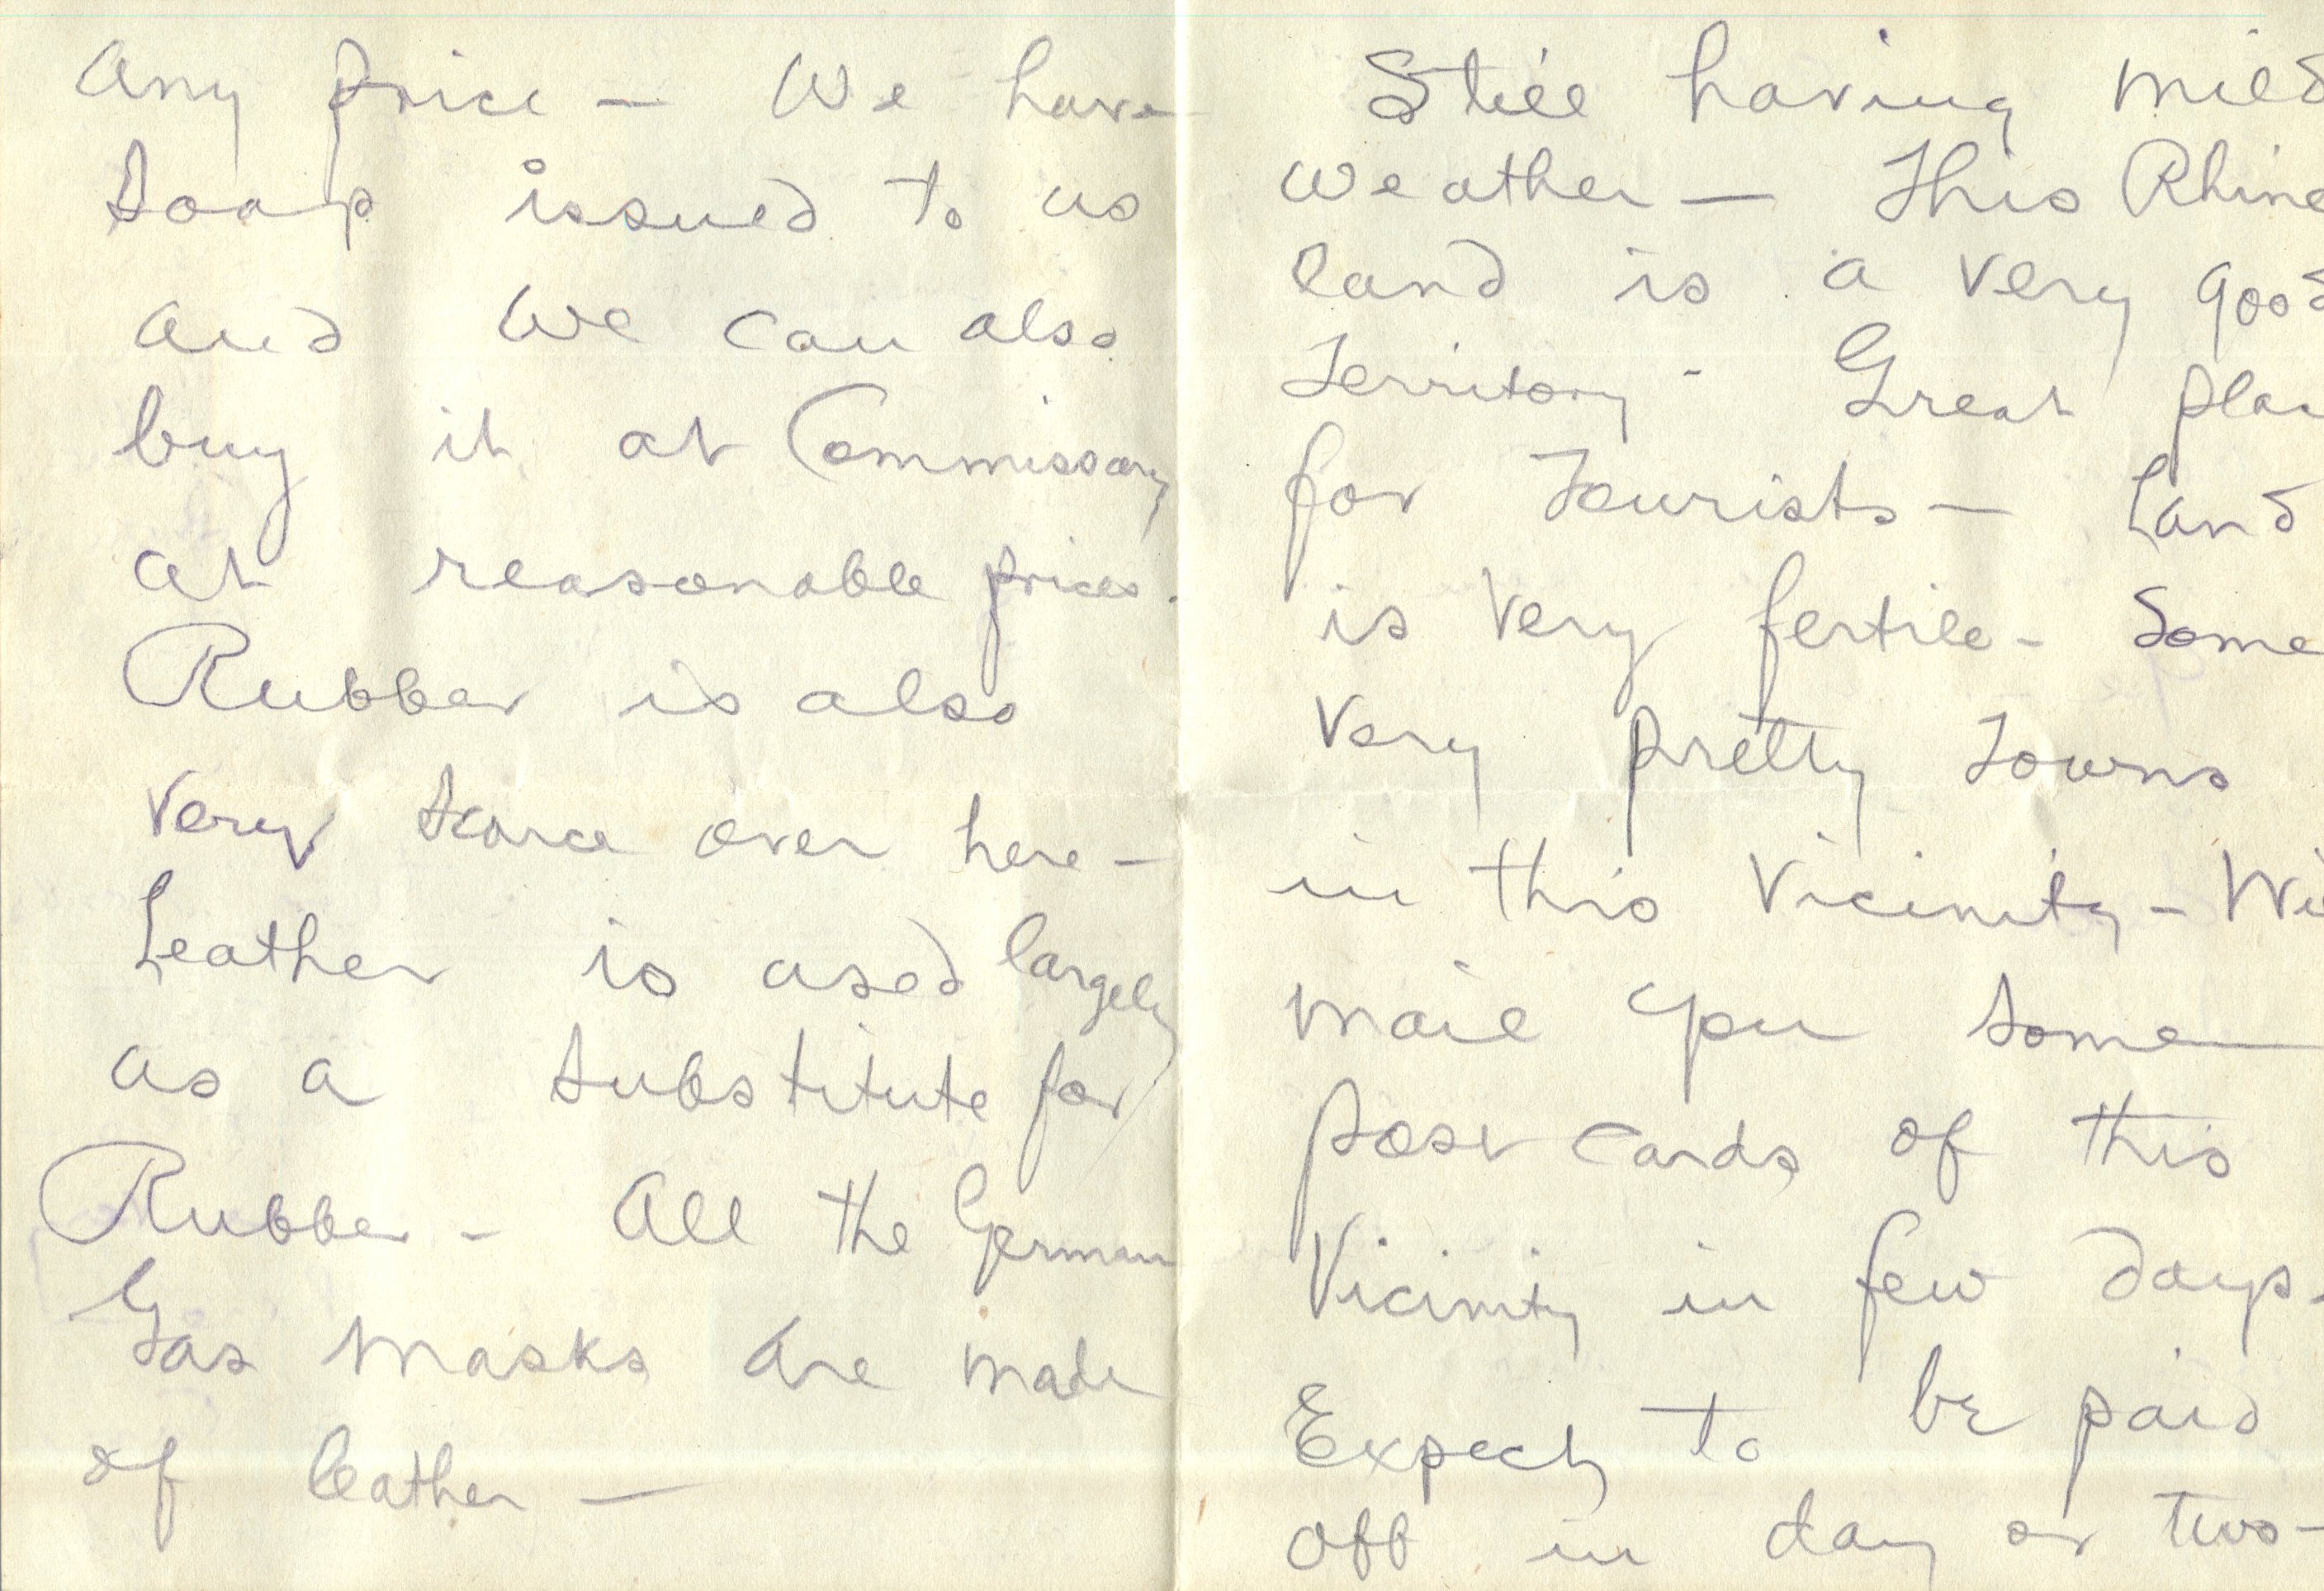 any price — We have
Soap issued to us
and we can also
buy it at Commissary
at reasonable prices.
Rubber is also
very scarce over here —
Leather is used largely
as a substitute for
Rubber - All the German
Gas Masks are made
of leather —
Still having mild
weather — This Rhine
land is a very good
Territory - Great
for Tourists — Land
is very fertile - Some
very pretty towns
in this Vicinity -
mail you some
post cards of this
Vicinity in few days.
Expect to be paid
off in day or two -